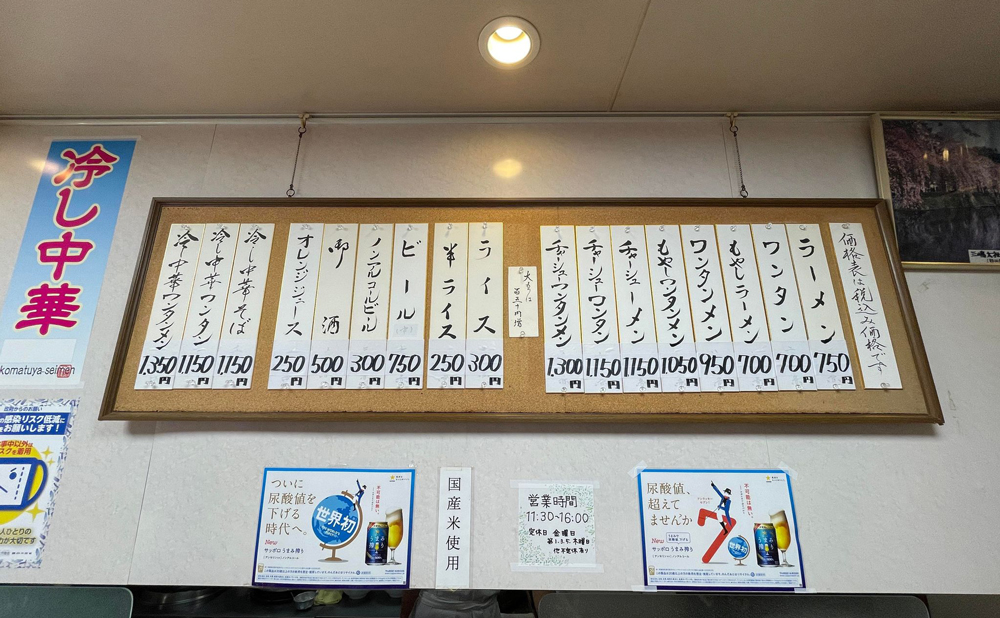 価格表は税込み価格です
ラーメン 750円
ワンタン 700円
もやしラーメン 700円
ワンタンメン 950円
もやしワンタンメン 1050円
チャーシューメン 1150円
チャーシューワンタン 1150円
チャーシューワンタンメン 1,300円
大もりは
百五十円増
ライス 300円
半ライス 250円
ビール 750円
ノンアルコールビール 300円
御酒 500円
オレンジジュース 250円
冷し中華そば 1,150円
冷し中華ワンタン 1,150円
冷し中華ワンタンメン 1,350円
冷し中華
komatuya-seimen
感染リスク低減に
お願いします!
ついに
尿酸値を
下げる
時代へ。
世界初
不可能は無い。
New
サッポロ うまみ搾り
国産米使用
営業時間
11:30~16:00
定休日 金曜日
第1.3.5.木曜日
他不定休あり
尿酸値、
超えて
ませんか
不可能は無い。
世界初
New
サッポロ うまみ搾り